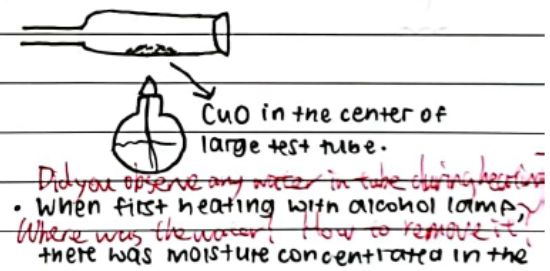 CuO in the center of
large test tube.
Did you observe any water in tube during heating
• When first heating with alcohol lamp,
Where was the water? How to remove it?
there was moisture concentrated in the